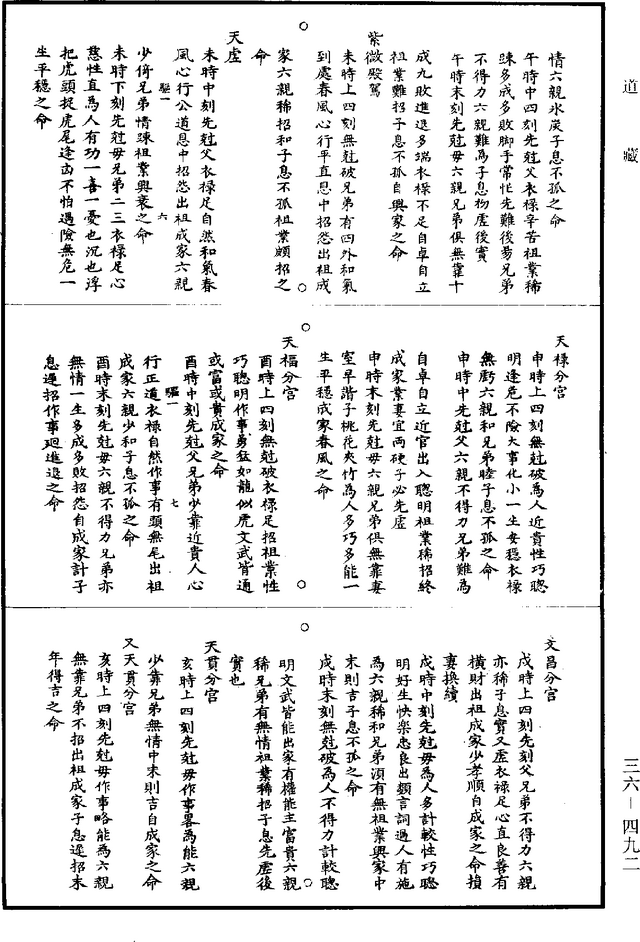 道藏
情六親氷炭子息不孤之命
午時中四刻先尅父衣祿辛苦祖業稀
踈多成多敗脚手常忙先難後昜兄弟
不得力六親難為子息初虛後實
午時末刻先尅毋六親兄弟俱無靠十
成九敗進退多端衣祿不足自卓自立
祖業難招子息不孤自興家之命
紫微殿駕
未時上四刻無尅破兄弟有四外和氣
到處春風心行平直恩中招怨出祖成
家六親稀招和子息不孤祖業頗招之
命
天虛
未時中刻先尅父衣祿足自然和氣春
風心行公道恩中招怨出祖成家六親
驅一　六
少倚兄弟情踈祖業興衰之命
未時下刻先尅毋兄弟二三衣祿足心
慈性直為人有功一喜一憂也沉也浮
把虎頭捉虎尾逢凶不怕遇險無危一
生平穩之命
天祿分宮
申時上四刻無尅破為人近貴性巧聰
明逢危不險大事化小一生安穩衣祿
無虧六親和兄弟睦子息不孤之命
申時中先尅父六親不得力兄弟難為
自卓自立近官出入聰明祖業稀招終
成家業妻宜两硬子必先虛
申時末刻先尅毋六親兄弟俱無靠妻
室早諧子桃花夾竹為人多巧多能一
生平穩成家春風之命
天福分宮
酉時上四刻無尅破衣祿足招祖業性
巧聰明作事勇猛如龍似虎文武皆通
或富或貴成家之命
酉時中刻先尅父兄弟少靠近貴人心
驅一　七
行正道衣祿自然作事有頭無尾出祖
成家六親少和子息不孤之命
酉時末刻先尅毋六親不得力兄弟亦
無情一生多成多敗招怨自成家計子
息遲招作事廻進退之命
文昌分宮
戌時上四刻先刻父兄弟不得力六親
亦稀子息實又虛衣祿足心直良善有
横財出祖成家少孝順自成家之命損
妻換續
戌時中刻先尅毋為人多計較性巧聰
明好生快樂忠良出頴言詞過人有施
為六親稀和兄弟湏有無祖業興家中
末則吉子息不孤之命
戌時末刻無尅破為人不得力計較聰
明文武皆能出家有權能主富貴六親
稀兄弟有無情祖業稀招子息先虛後
實也
天貫分宮
亥時上四刻先尅毋作事畧為能六親
少靠兄弟無情中末則吉自成家之命
又天貫分宮
亥時上四刻先尅毋作事略能為六親
無靠兄弟不招出祖成家子息遲招末
年得吉之命
三六－四九二